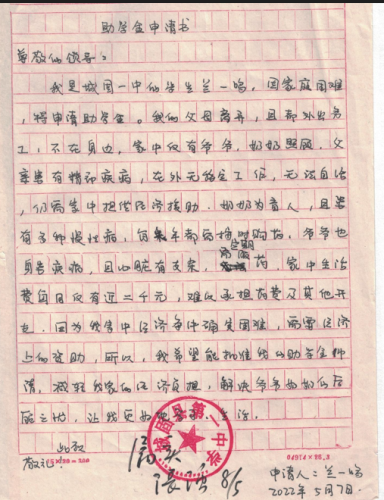 助学金申请书
尊敬的领导：
我是城固一中的学生兰一鸣，因家庭困难，
特申请助学金。我的父母离异，且都外出务
工，不在身边，家中仅有爷爷、奶奶照顾，父
亲患有精神疾病，在外无稳定工作，无法自治
，仍需家中提供经济援助。奶奶为盲人，且患
有多种慢性病，每年都药持时购药，爷爷也
定期
身患疾病，且心脏有支架，需服药，家中生活
费每月仅有近二千元，难以承担药费及其他开
支。因为我家中经济条件确实困难，而需经济
上的资助，所以，我希望能批准我的助学金申
请，减轻我家的经济负担，解决爷爷奶奶的后
顾之忧，让我更好地学习、生活。
此致
敬礼！
情况属实
8/5
城固县第一中学
25×20=500
申请人：兰一鸣
2022年5月7日.